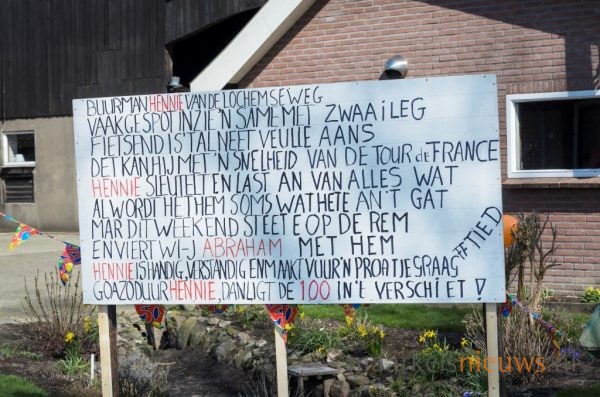 BUURMAN HENNIE VAN DE LOCHEMSEWEG
VAAK GESPOT IN ZIE'N SAME MET ZWAAILEG
FIETSEND IS TAL NEET VEULLE AANS
DET KAN HIJ MET 'N SNELHEID VAN DE TOUR de FRANCE
HENNIE SLEUTELT EN LAST AN VAN ALLES WAT
AL WORDT HET HEM SOMS WAT HETE AN'T GAT
MAR DIT WEEKEND STEET E OP DE REM
EN VIERT WI-J ABRAHAM MET HEM
HENNIE IS HANDIG, VERSTANDIG EN MAKT VUUR'N PROATJE GRAAG #TIED
GOAZO DUUR HENNIE, DAN LIGT DE 100 IN'T VERSCHIET!
nieuws